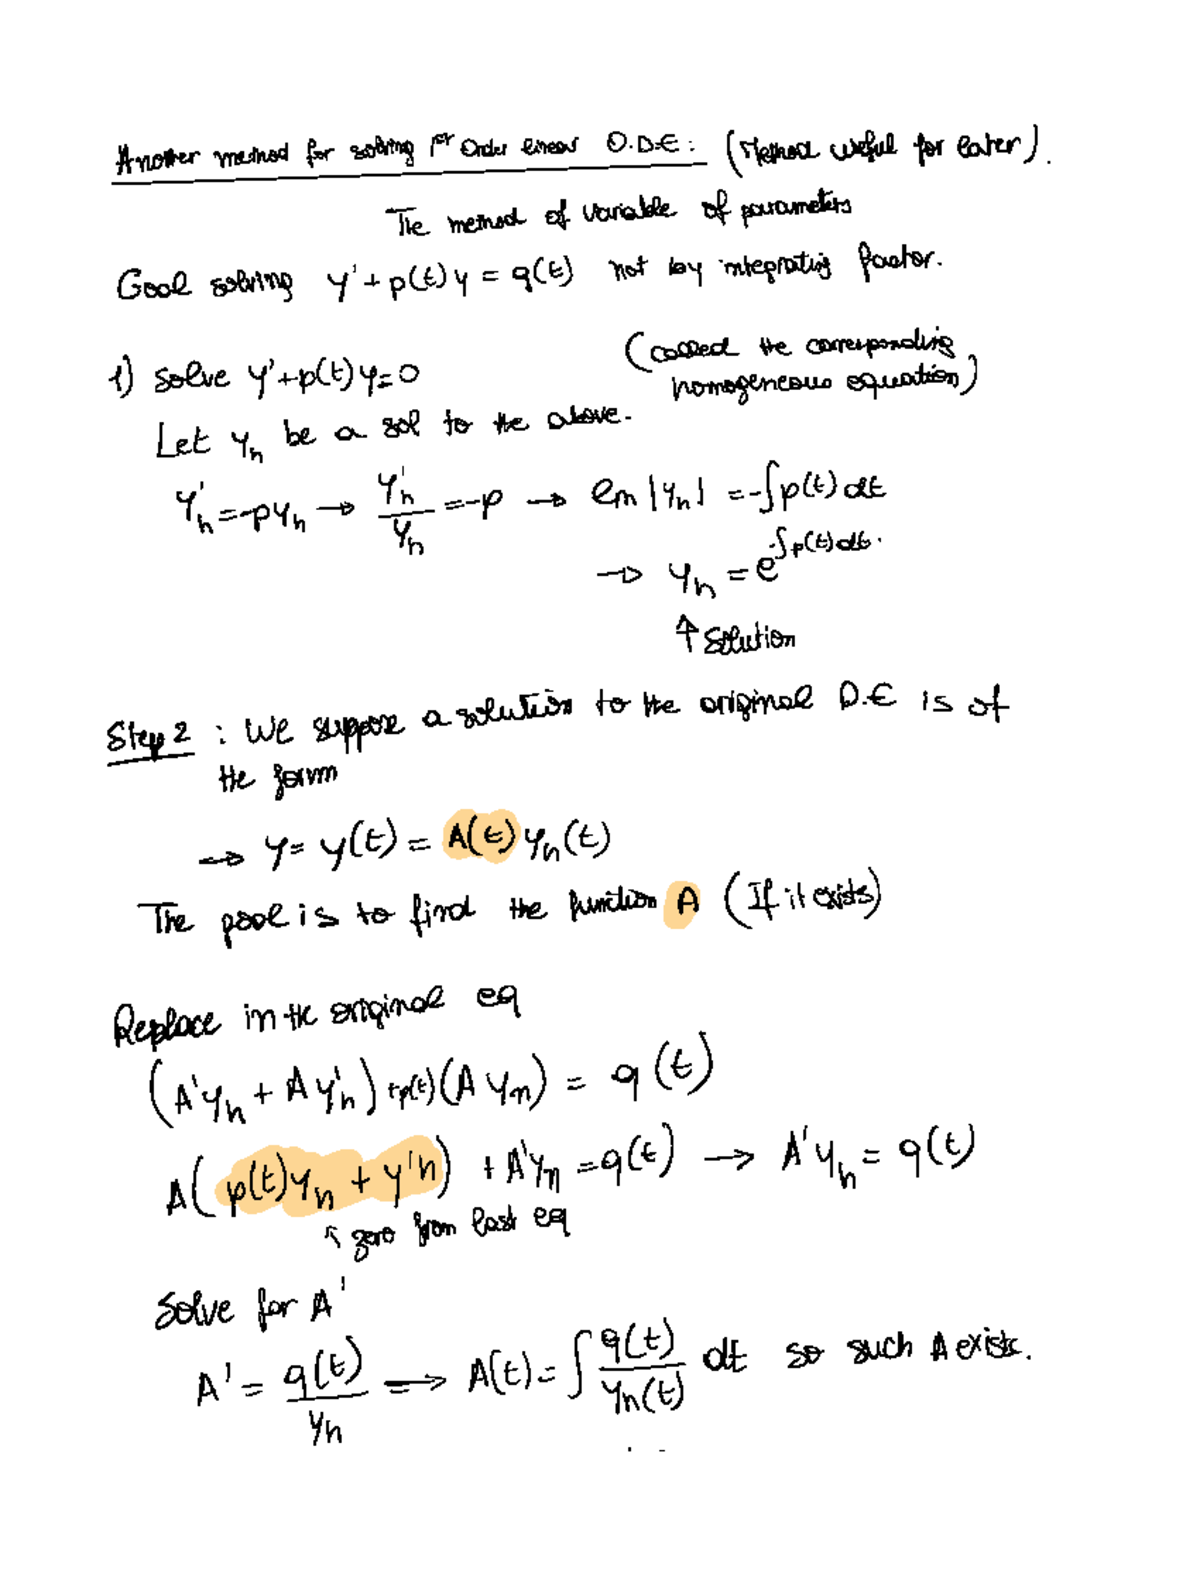 Another method for solving 1st Order linear O.D.E: (Method useful for later).
The method of variable of parameters
Goal solving y' + p(t)y = q(t) not by integrating factor.
1) solve y'+p(t)y=0 (called the corresponding
homogeneous equation)
Let yh be a sol to the above.
y'h=-pyh → y'h/yh =-p → ln |yh| =-∫p(t)dt
→ yh = e^-∫p(t)dt.
↑ Solution
Step 2 : We suppose a solution to the original D.E is of
the form
→ y= y(t) = A(t) yh(t)
The pool is to find the function A (If it exists)
Replace in the original eq
(A'yh + A y'h) +p(t)(A yh) = q(t)
A( p(t)yh + y'h) + A'yh =q(t) → A'yh = q(t)
↖ zero from last eq
Solve for A'
A' = q(t)/yh => A(t)= ∫ q(t)/yh(t) dt so such A exists.